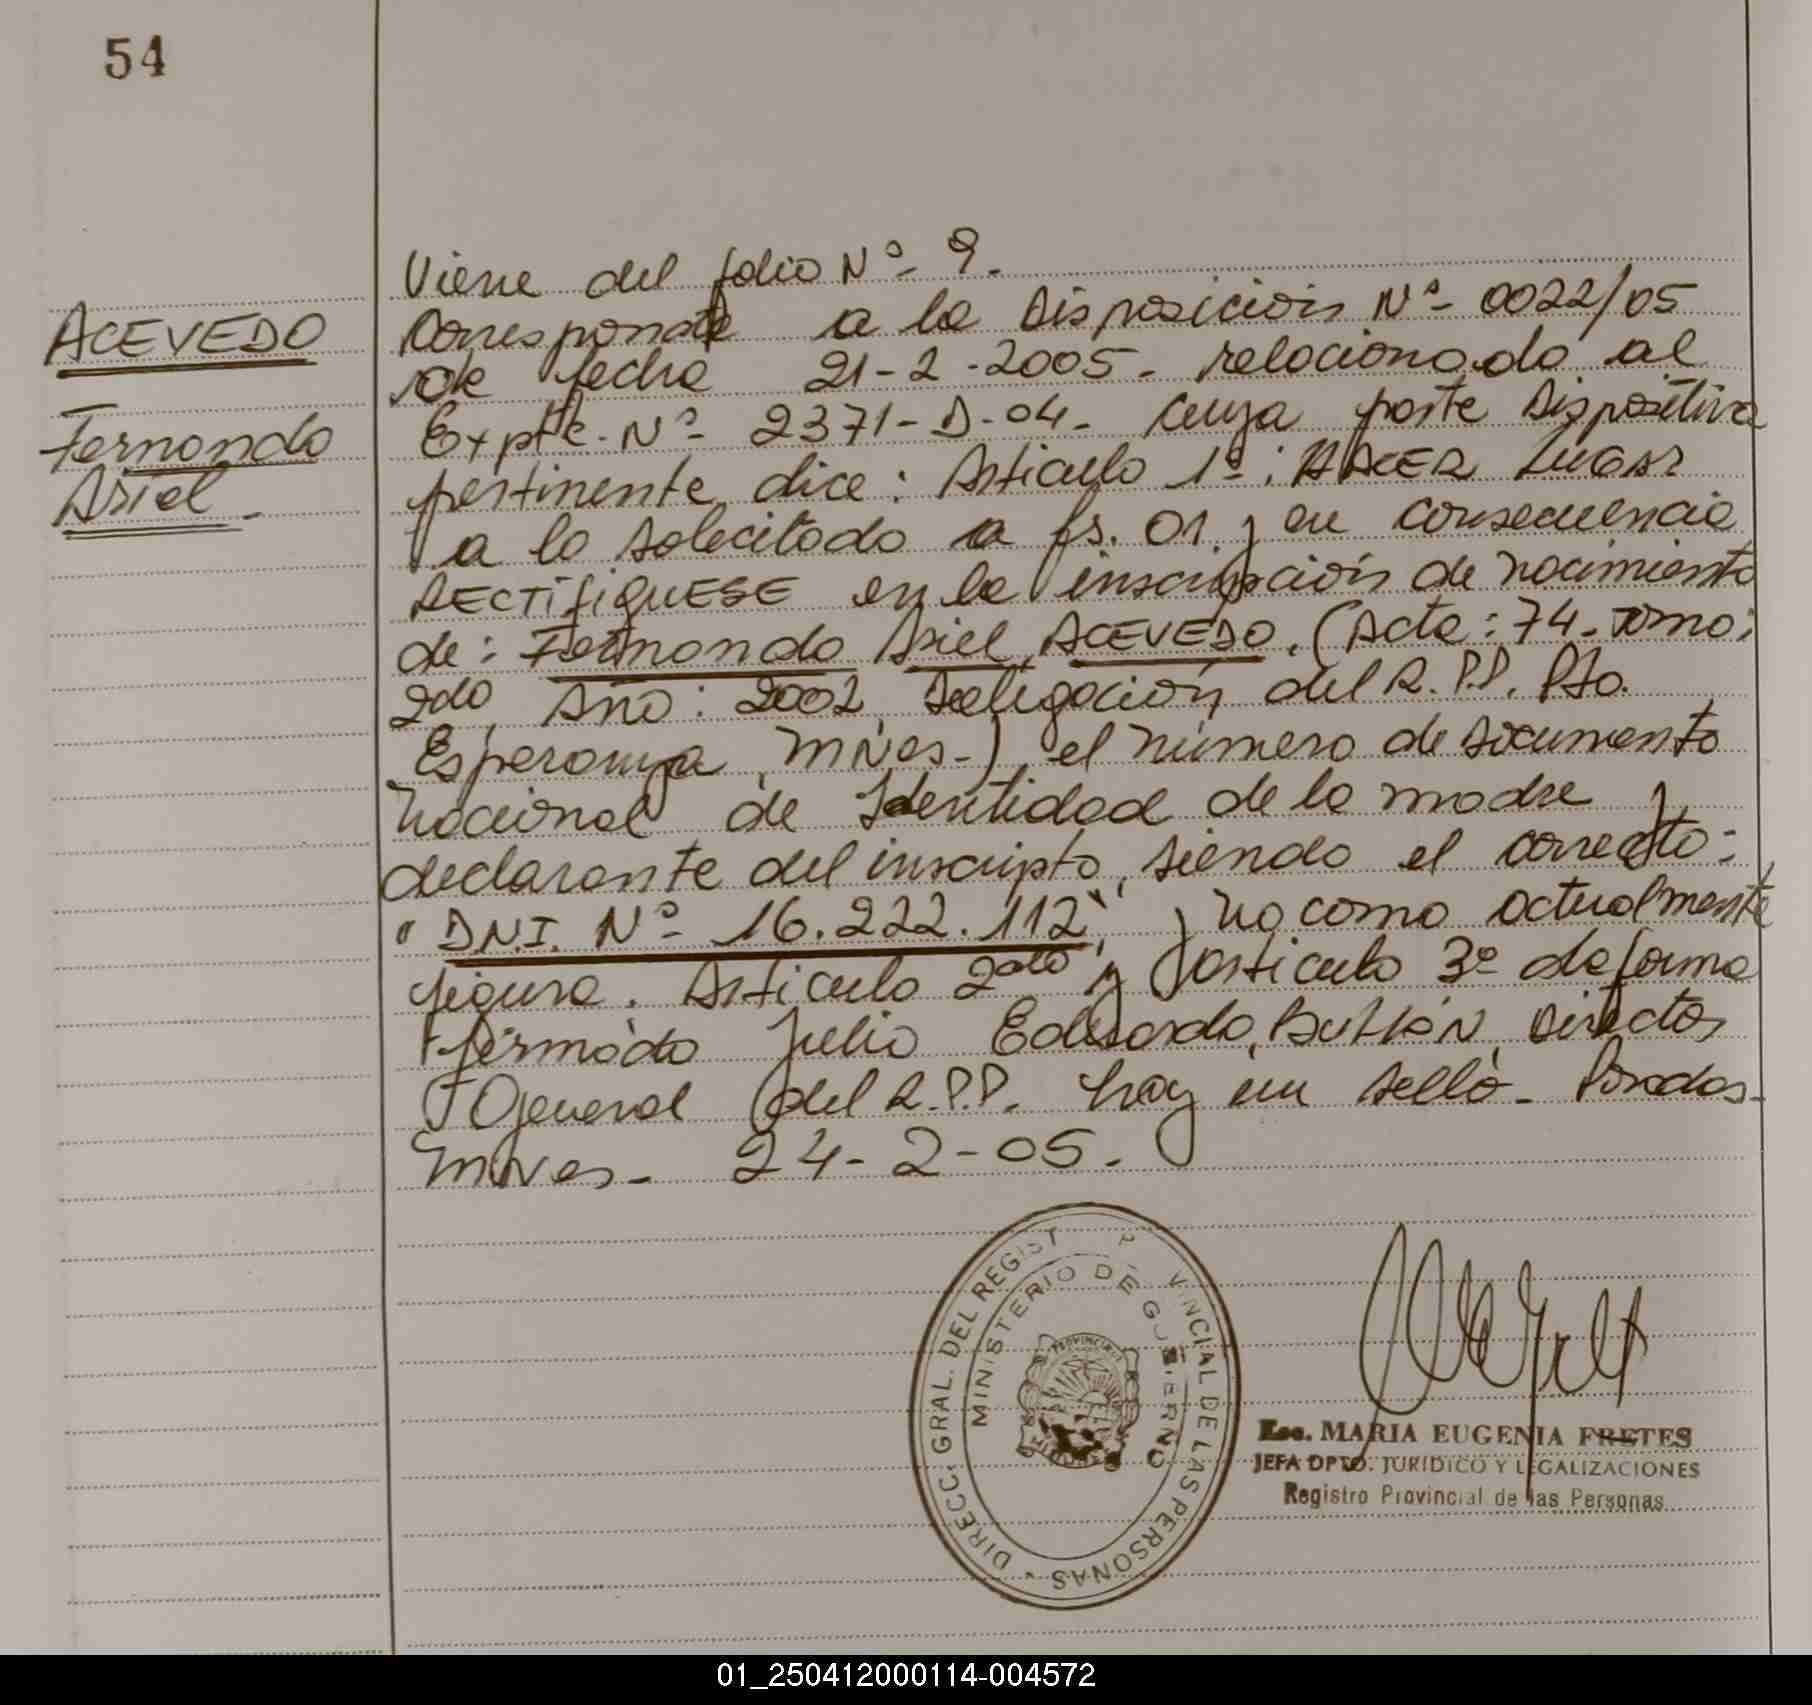 54
ACEVEDO
Fernando
Ariel.-
Viene del folio Nº 9.-
Corresponde a la Disposición Nº 0022/05
de fecha 21-2-2005- relacionado al
Expte. Nº 2371-D-04- cuya parte Dispositiva
pertinente, dice: Artículo 1º: HACER LUGAR
a lo solicitado a fs. 01 y en consecuencia
RECTIFIQUESE en la inscripción de nacimiento
de: Fernando Ariel ACEVEDO. (Acta: 74- Tomo:
2do, Año: 2002, Delegación del R.P.P. Pto.
Esperanza, MNes-) el número de Documento
Nacional de Identidad de la madre y
declarante del inscripto, siendo el correcto:
"DNI. Nº 16.222.112", y no como actualmente
figura. Artículo 2do y artículo 3º de forma
firmado Julio Eduardo, Director
General del R.P.P. hay un sello- Posadas-
MNes- 24-2-05-
DIRECC. GRAL. DEL REGIST P VINCIAL DE LAS PERSONAS
MINISTERIO DE GOBIERNO
PROVINCIA
MISIONES
Esc. MARIA EUGENIA FRETES
JEFA DPTO. JURIDICO Y LEGALIZACIONES
Registro Provincial de las Personas
01_250412000114-004572